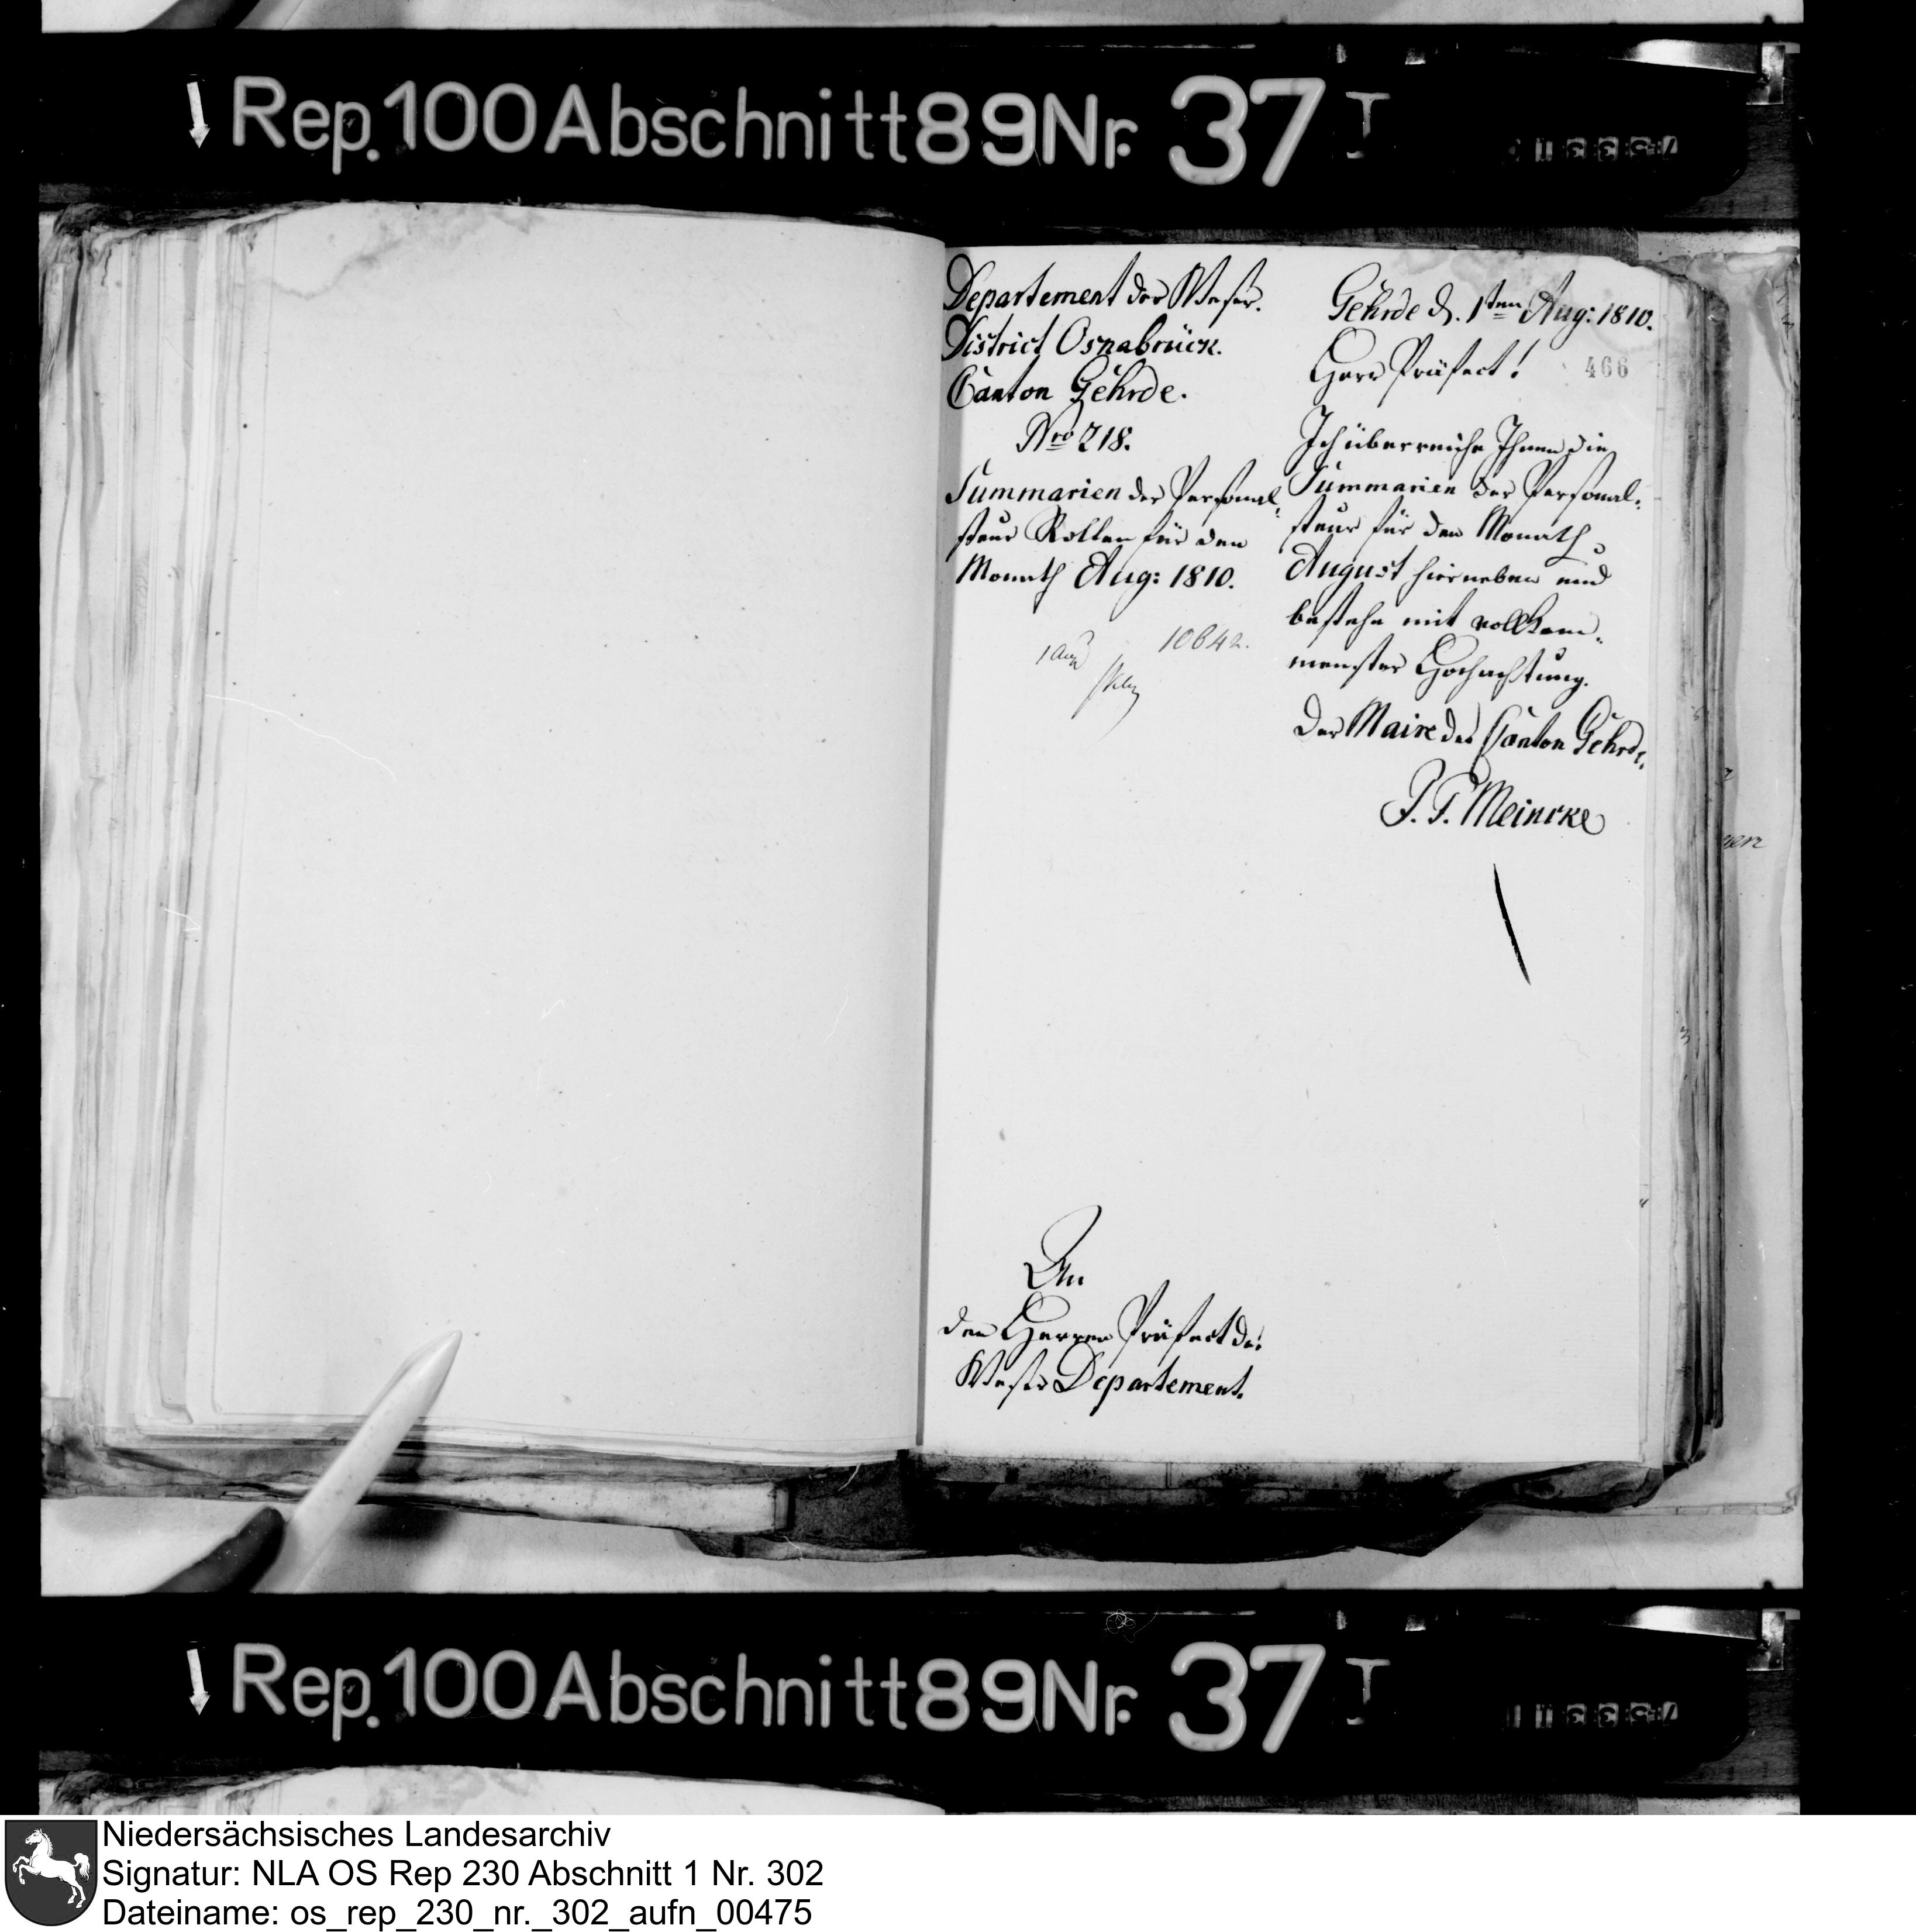 Rep. 100 Abschnitt 89 Nr. 37 I
Departement der Weser.
District Osnabrück.
Canton Gehrde.
Nro 218.
Summarien der Personal-
steur Rollen für den
Monath Aug: 1810.
1 Aug
10642.
Gehrde d. 1ten Aug: 1810.
Herr Präfect!
466
Ich überreiche Ihnen die
Summarien der Personal-
steur für den Monath
August hierneben und
bestehe mit vollkom-
menster Hochachtung.
Der Maire des Canton Gehrde.
Meincke
An
den Herren Präfect des
Weser Departement.
Rep. 100 Abschnitt 89 Nr. 37 I
Niedersächsisches Landesarchiv
Signatur: NLA OS Rep 230 Abschnitt 1 Nr. 302
Dateiname: os_rep_230_nr._302_aufn_00475